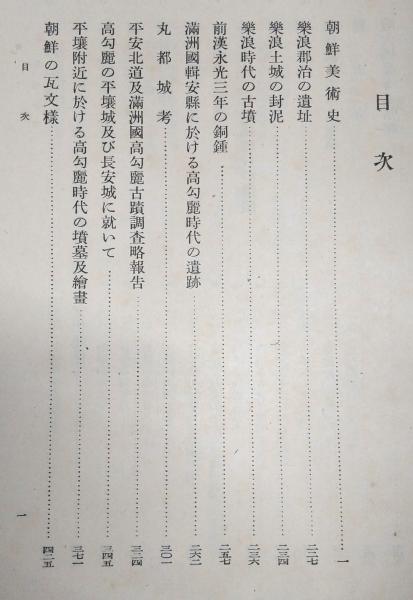 目次
朝鮮美術史……………一
樂浪郡治の遺址……………二二七
樂浪土城の封泥……………二三四
樂浪時代の古墳……………二三六
前漢永光三年の銅鍾……………二五七
滿洲國輯安縣に於ける高勾麗時代の遺跡……………二六二
丸都城考……………三〇一
平安北道及滿洲國高勾麗古蹟調査略報告……………三二四
高勾麗の平壤城及び長安城に就いて……………三四五
平壤附近に於ける高勾麗時代の墳墓及繪畫……………三七一
朝鮮の瓦文樣……………四二五
目次
一